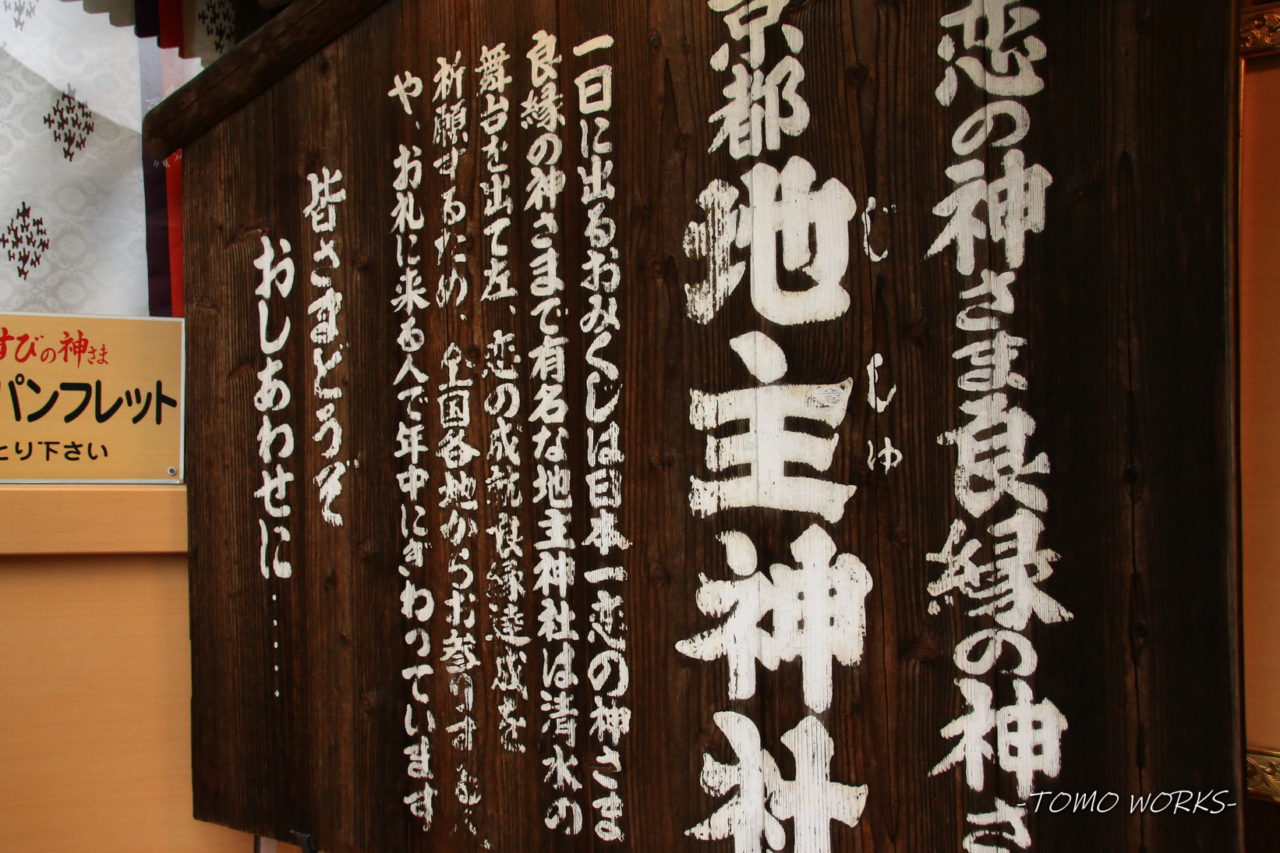 恋の神さま良縁の神さ
京都地主神社
じしゅ
一日に出るおみくじは日本一恋の神さま
良縁の神さまで有名な地主神社は清水の
舞台を出て左、恋の成就良縁達成を
祈願するため、全国各地からお参りする
や、お札に来る人で年中にぎわっています
皆さまどうぞ
おしあわせに……
すびの神さま
パンフレット
とり下さい
-TOMO WORKS-